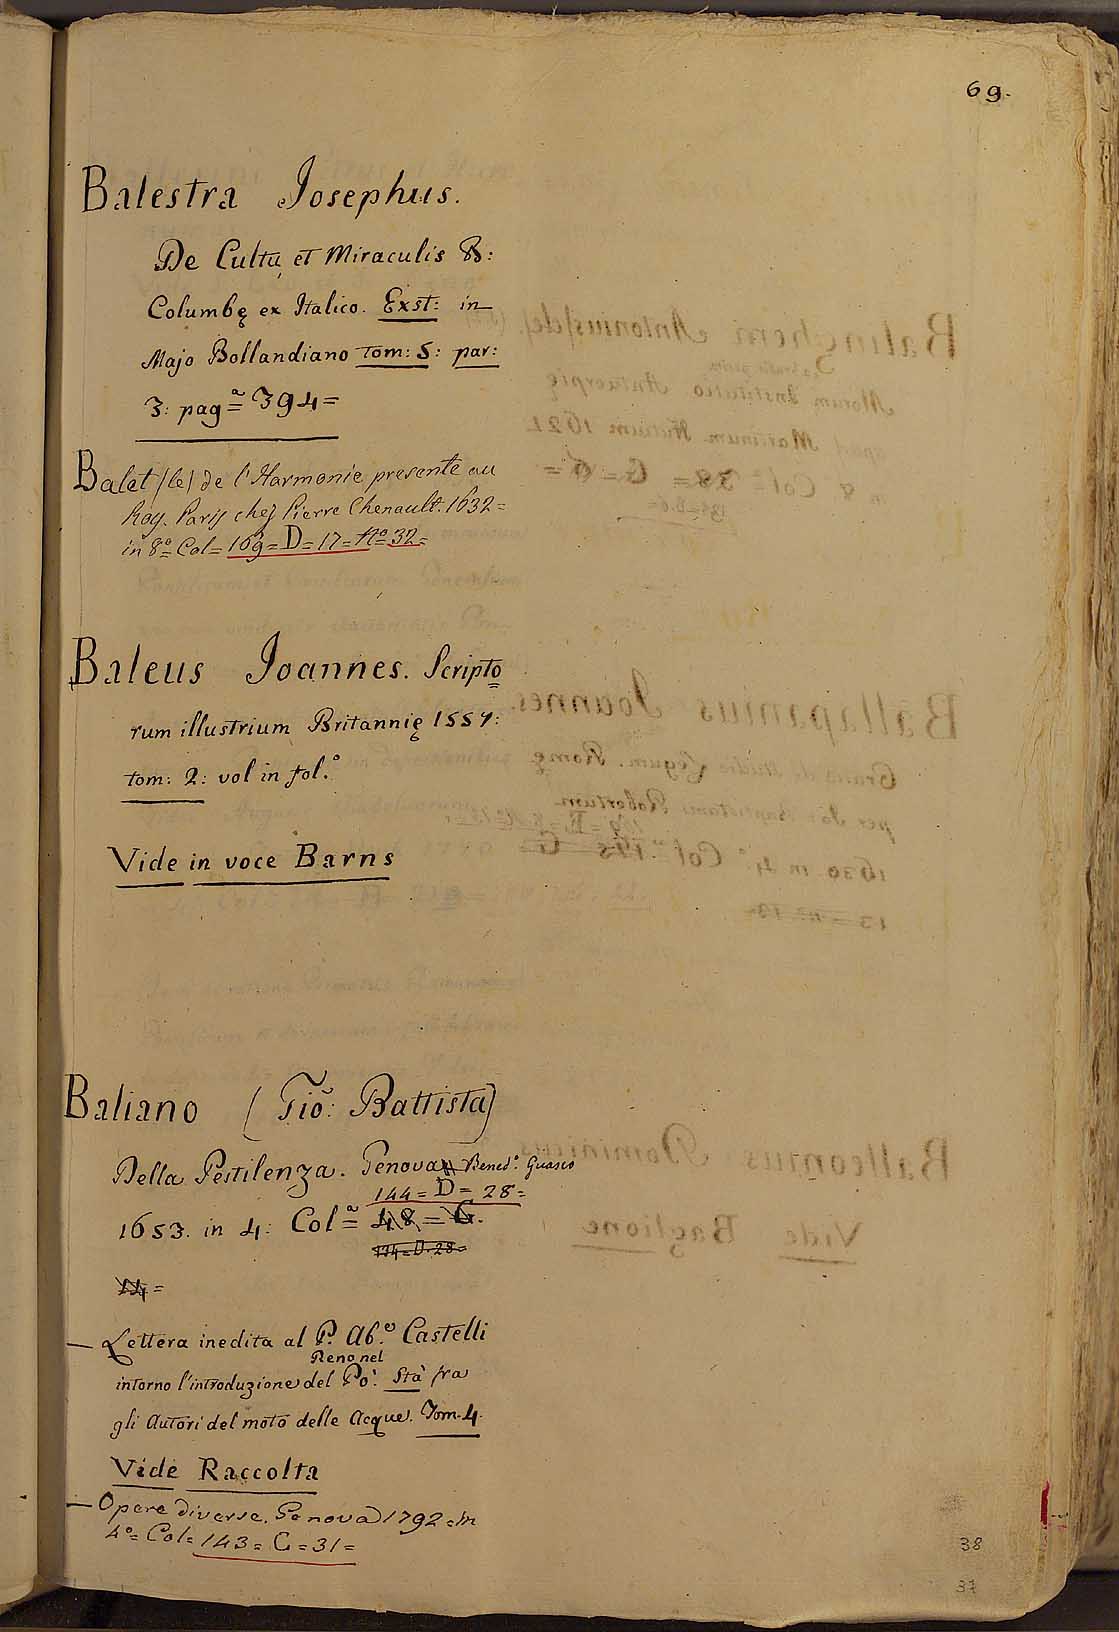 69.
Balestra Josephus.
De Cultu et Miraculis B:
Columbę ex Italico. Exst: in
Majo Bollandiano tom: 5: par:
3: pag.ª 394=
Balet (le) de l'Harmonie presente au
Roy. Paris chez Pierre Chenault. 1632=
in 8º= Col= 169= D= 17= Nº= 32=
Baleus Joannes. Scripto
rum illustrium Britannię 1557:
tom: 2: vol in fol.º
Vide in voce Barns
Baliano (Gio: Battista)
Della Pestilenza. Genova Bened.º Guasco
144= D= 28=
1653. in 4: Col.ª 48= G.
144= D. 28=
14=
— Lettera inedita al P. Ab.e Castelli
Reno nel
intorno l'introduzione del Po. Stà fra
gli Autori del moto delle Acque. Tom. 4.
Vide Raccolta
— Opere diverse. Genova 1792= in
4º= Col= 143= G= 31=
38
37